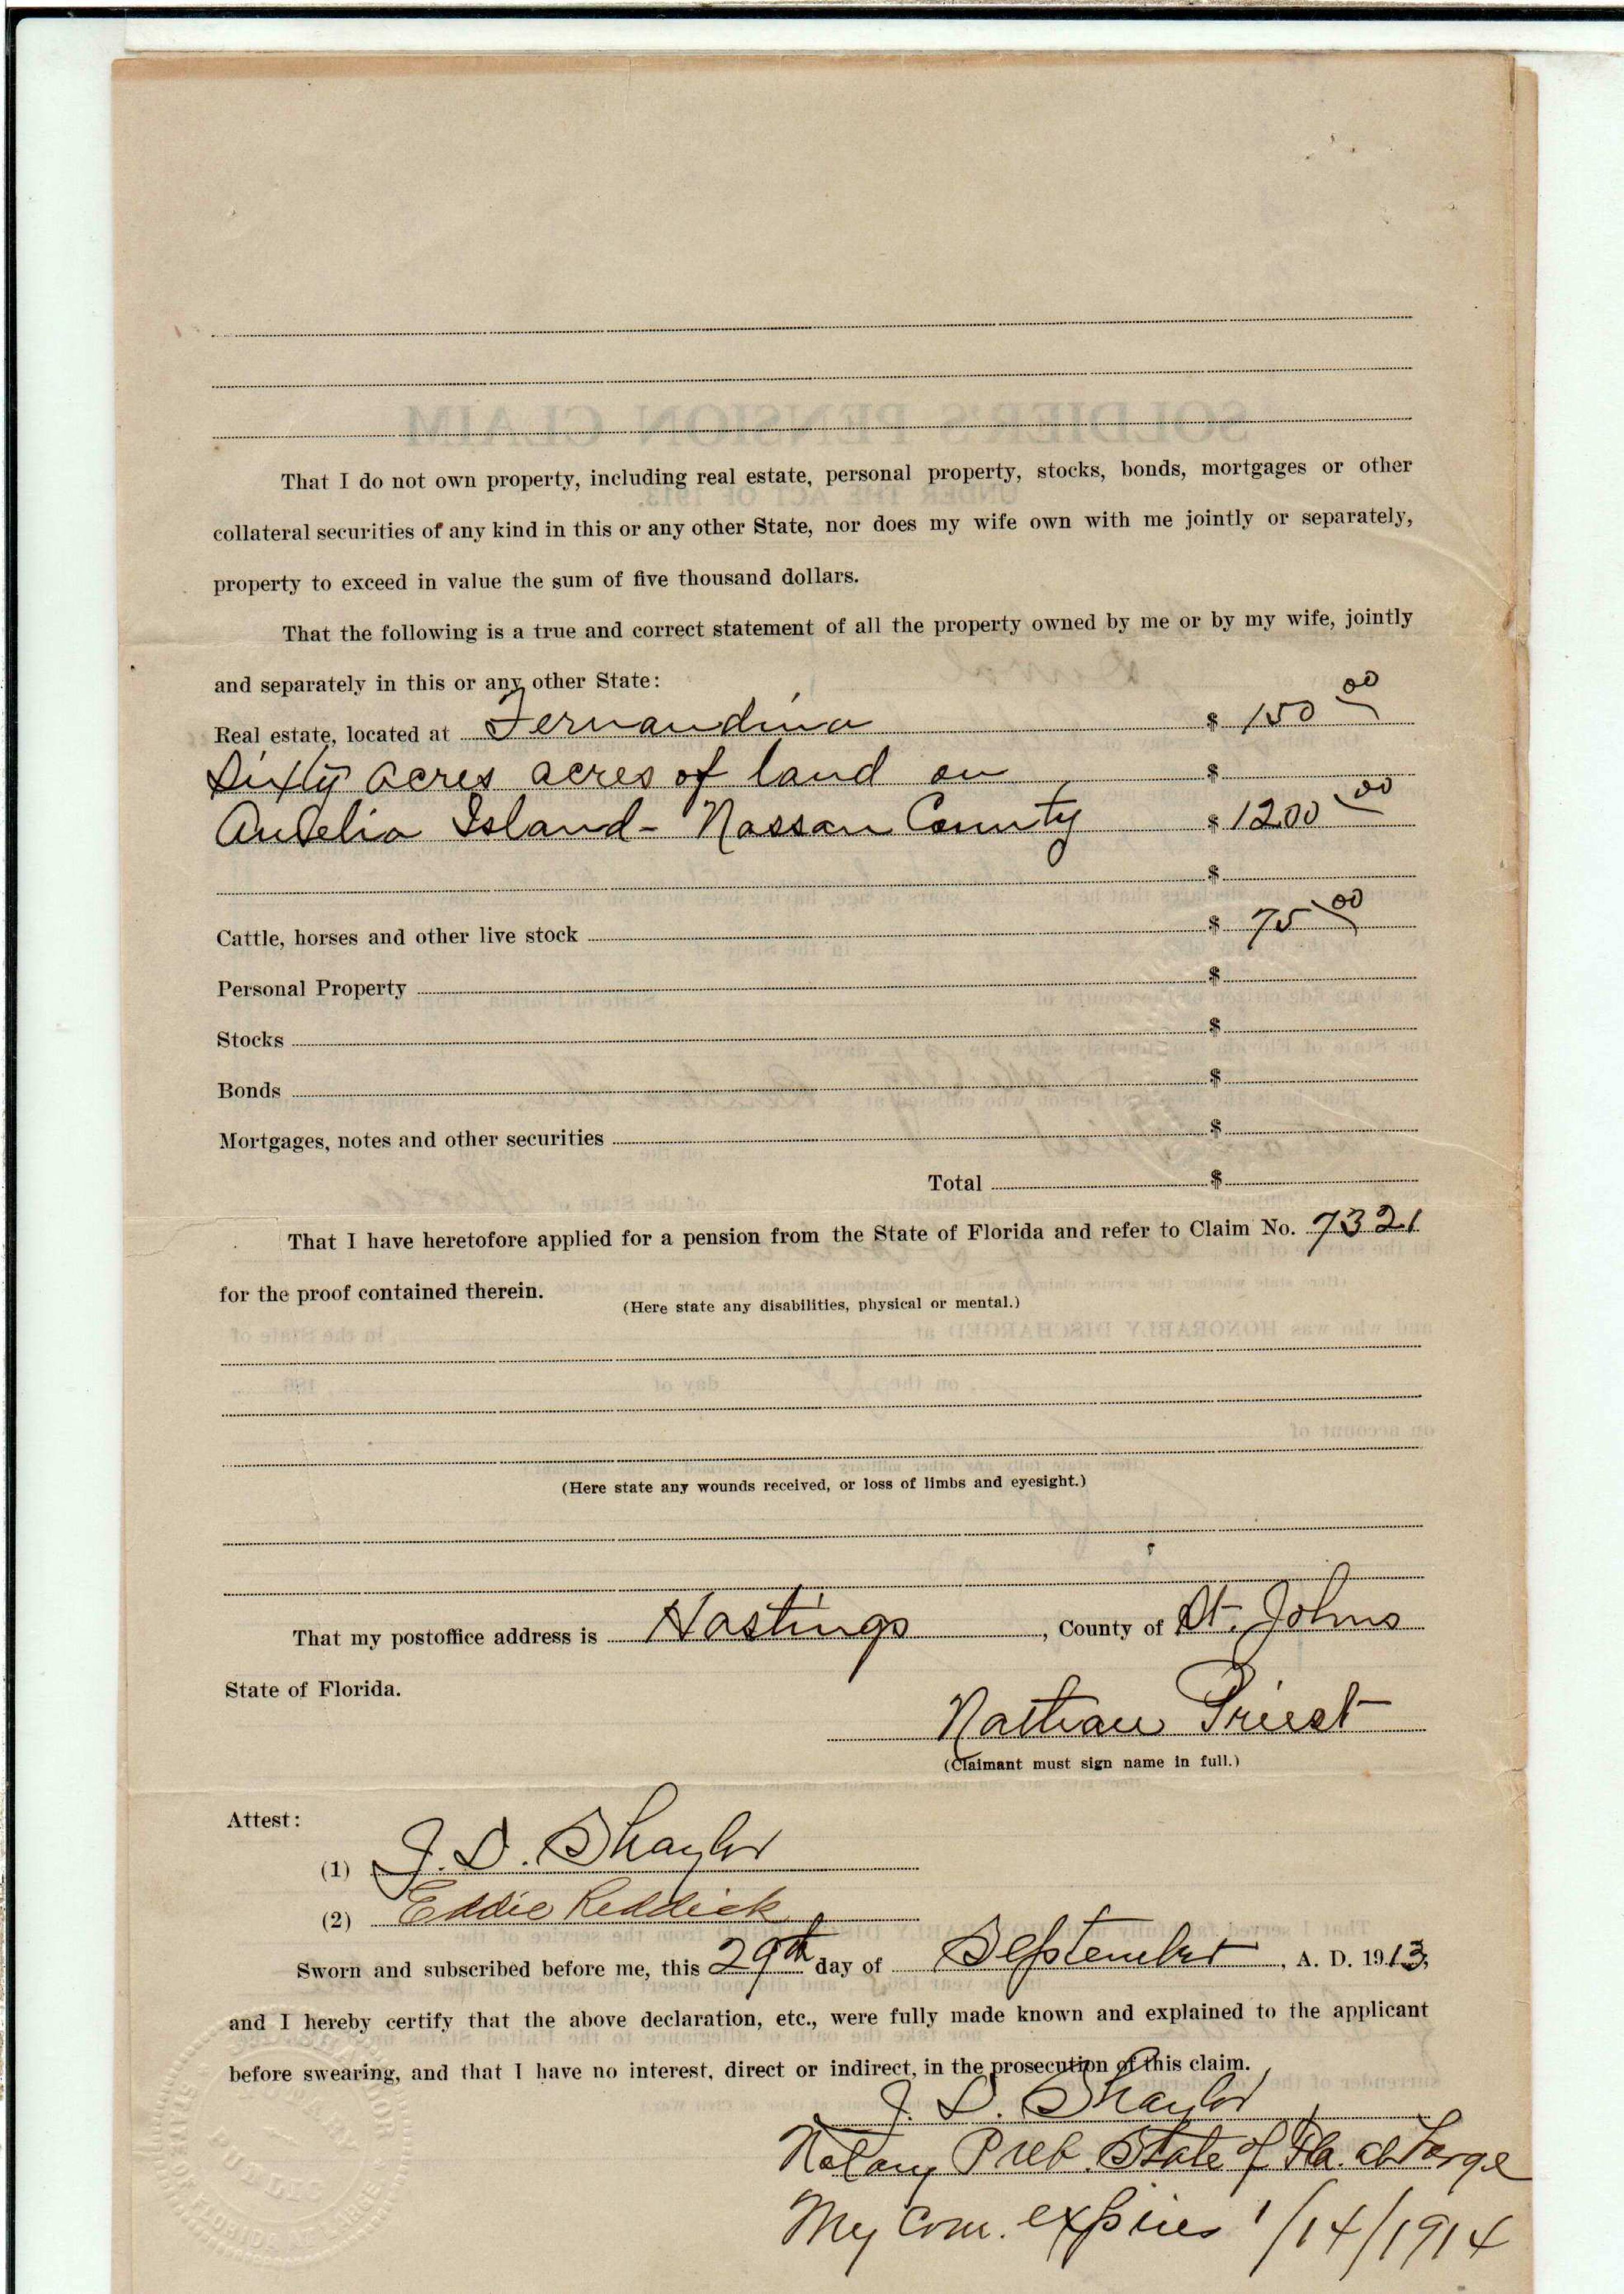 That I do not own property, including real estate, personal property, stocks, bonds, mortgages or other
collateral securities of any kind in this or any other State, nor does my wife own with me jointly or separately,
property to exceed in value the sum of five thousand dollars.
That the following is a true and correct statement of all the property owned by me or by my wife, jointly
and separately in this or any other State:
Real estate, located at Fernandina $ 150 00
Sixty acres acres of land on $
Amelia Island - Nassau County $ 1200 00
$
Cattle, horses and other live stock $ 75 00
Personal Property $
Stocks $
Bonds $
Mortgages, notes and other securities $
Total $
That I have heretofore applied for a pension from the State of Florida and refer to Claim No. 7321
for the proof contained therein.
(Here state any disabilities, physical or mental.)
(Here state any wounds received, or loss of limbs and eyesight.)
That my postoffice address is Hastings, County of St. Johns
State of Florida.
Nathan Priest
(Claimant must sign name in full.)
Attest:
(1) J. D. Shaylor
(2) Eddie Reddick
Sworn and subscribed before me, this 29th day of September, A. D. 1913,
and I hereby certify that the above declaration, etc., were fully made known and explained to the applicant
before swearing, and that I have no interest, direct or indirect, in the prosecution of this claim.
J. D. Shaylor
Notary Pub. State of Fla. at Large
My Com. expires 1/14/1914